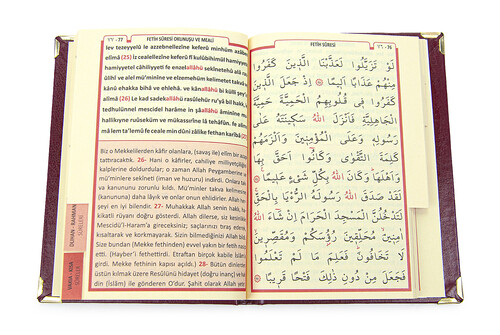 ٧٦ - 77
FETİH SÛRESİ OKUNUŞU VE MEALİ
lev tezeyyelû le azzebnellezîne keferû minhüm azâben
elîma (25) İz cealellezîne keferû fî kulûbihimül hamiyyete
hamiyyetel câhiliyyeti fe enzelallâhü sekînetehû alâ
rasûlihî ve alel mü'minîne ve elzemehüm kelimetet takvâ ve
kânû ehakka bihâ ve ehlehâ. ve kânallâhü bi külli şey'in
alîma (26) Le kad sadekallâhü rasûlehür ru'yâ bil hakk.
tedhulünnel mescidel harâme in şâallâhü âminîne
muhallikıyne ruûseküm ve mükassırîne lâ tehâfûn. fe alime
mâ lem ta'lemû fe ceale min dûni zâlike fethan karîba (27)
Biz o Mekkelilerden kâfir olanlara, (savaş ile) elîm bir azap
tattıracaktık. 26- Hani o kâfirler, cahiliye milliyetçiliğini,
kalplerine doldurdular; o zaman Allah Peygamberine ve
mü'minlere sekîneti (iman ve huzuru) indirdi. Onlara takva
ve kanununu zorunlu kıldı. Mü'minler takva kelimesine
(kanununa) daha lâyık ve onlar onun ehlidirler. Allah her
şeyi en iyi bilendir. 27- Muhakkak Allah
katiltı rüyanı doğru gösterdi. Allah dilerse, siz kesinlikle
Mescidü'l-Haram'a gireceksiniz; saçlarınızı tıraş ederek,
kısaltarak ve korkmayarak. Sizin bilmediğinizi Allah bildi.
Size bundan (Mekke fethinden) evvel yakın bir fetih nasip
etti. (Hayber'i fethettirdi. Etraftan birçok kabile İslâm'a
girdi. Mekke fethinin kapısı açıldı.) 28- Bütün dinlerden
üstün kılmak üzere Resûlünü hidayet (doğru inanç) ve
din (İslâm) ile gönderen O'dur. Şahit olarak Allah
DUHAN - RAHMAN
SÛRELERİ
VAKIA - ASR
SÛRELERİ
FETİH SÛRESİ
٧٦ - 76
لَوْ تَزَيَّلُوا لَعَذَّبْنَا الَّذِينَ كَفَرُوا
مِنْهُمْ عَذَابًا أَلِيمًا ﴿٢٥﴾ إِذْ جَعَلَ الَّذِينَ
كَفَرُوا فِي قُلُوبِهِمُ الْحَمِيَّةَ حَمِيَّةَ
الْجَاهِلِيَّةِ فَأَنْزَلَ اللهُ سَكِينَتَهُ عَلَى
رَسُولِهِ وَعَلَى الْمُؤْمِنِينَ وَأَلْزَمَهُمْ
كَلِمَةَ التَّقْوَى وَكَانُوا أَحَقَّ بِهَا
وَأَهْلَهَا وَكَانَ اللهُ بِكُلِّ شَيْءٍ عَلِيمًا ﴿٢٦﴾
لَقَدْ صَدَقَ اللهُ رَسُولَهُ الرُّؤْيَا بِالْحَقِّ
لَتَدْخُلُنَّ الْمَسْجِدَ الْحَرَامَ إِنْ شَاءَ اللهُ
آمِنِينَ مُحَلِّقِينَ رُؤُسَكُمْ وَمُقَصِّرِينَ
لَا تَخَافُونَ فَعَلِمَ مَا لَمْ تَعْلَمُوا
فَجَعَلَ مِنْ دُونِ ذٰلِكَ فَتْحًا قَرِيبًا ﴿٢٧﴾